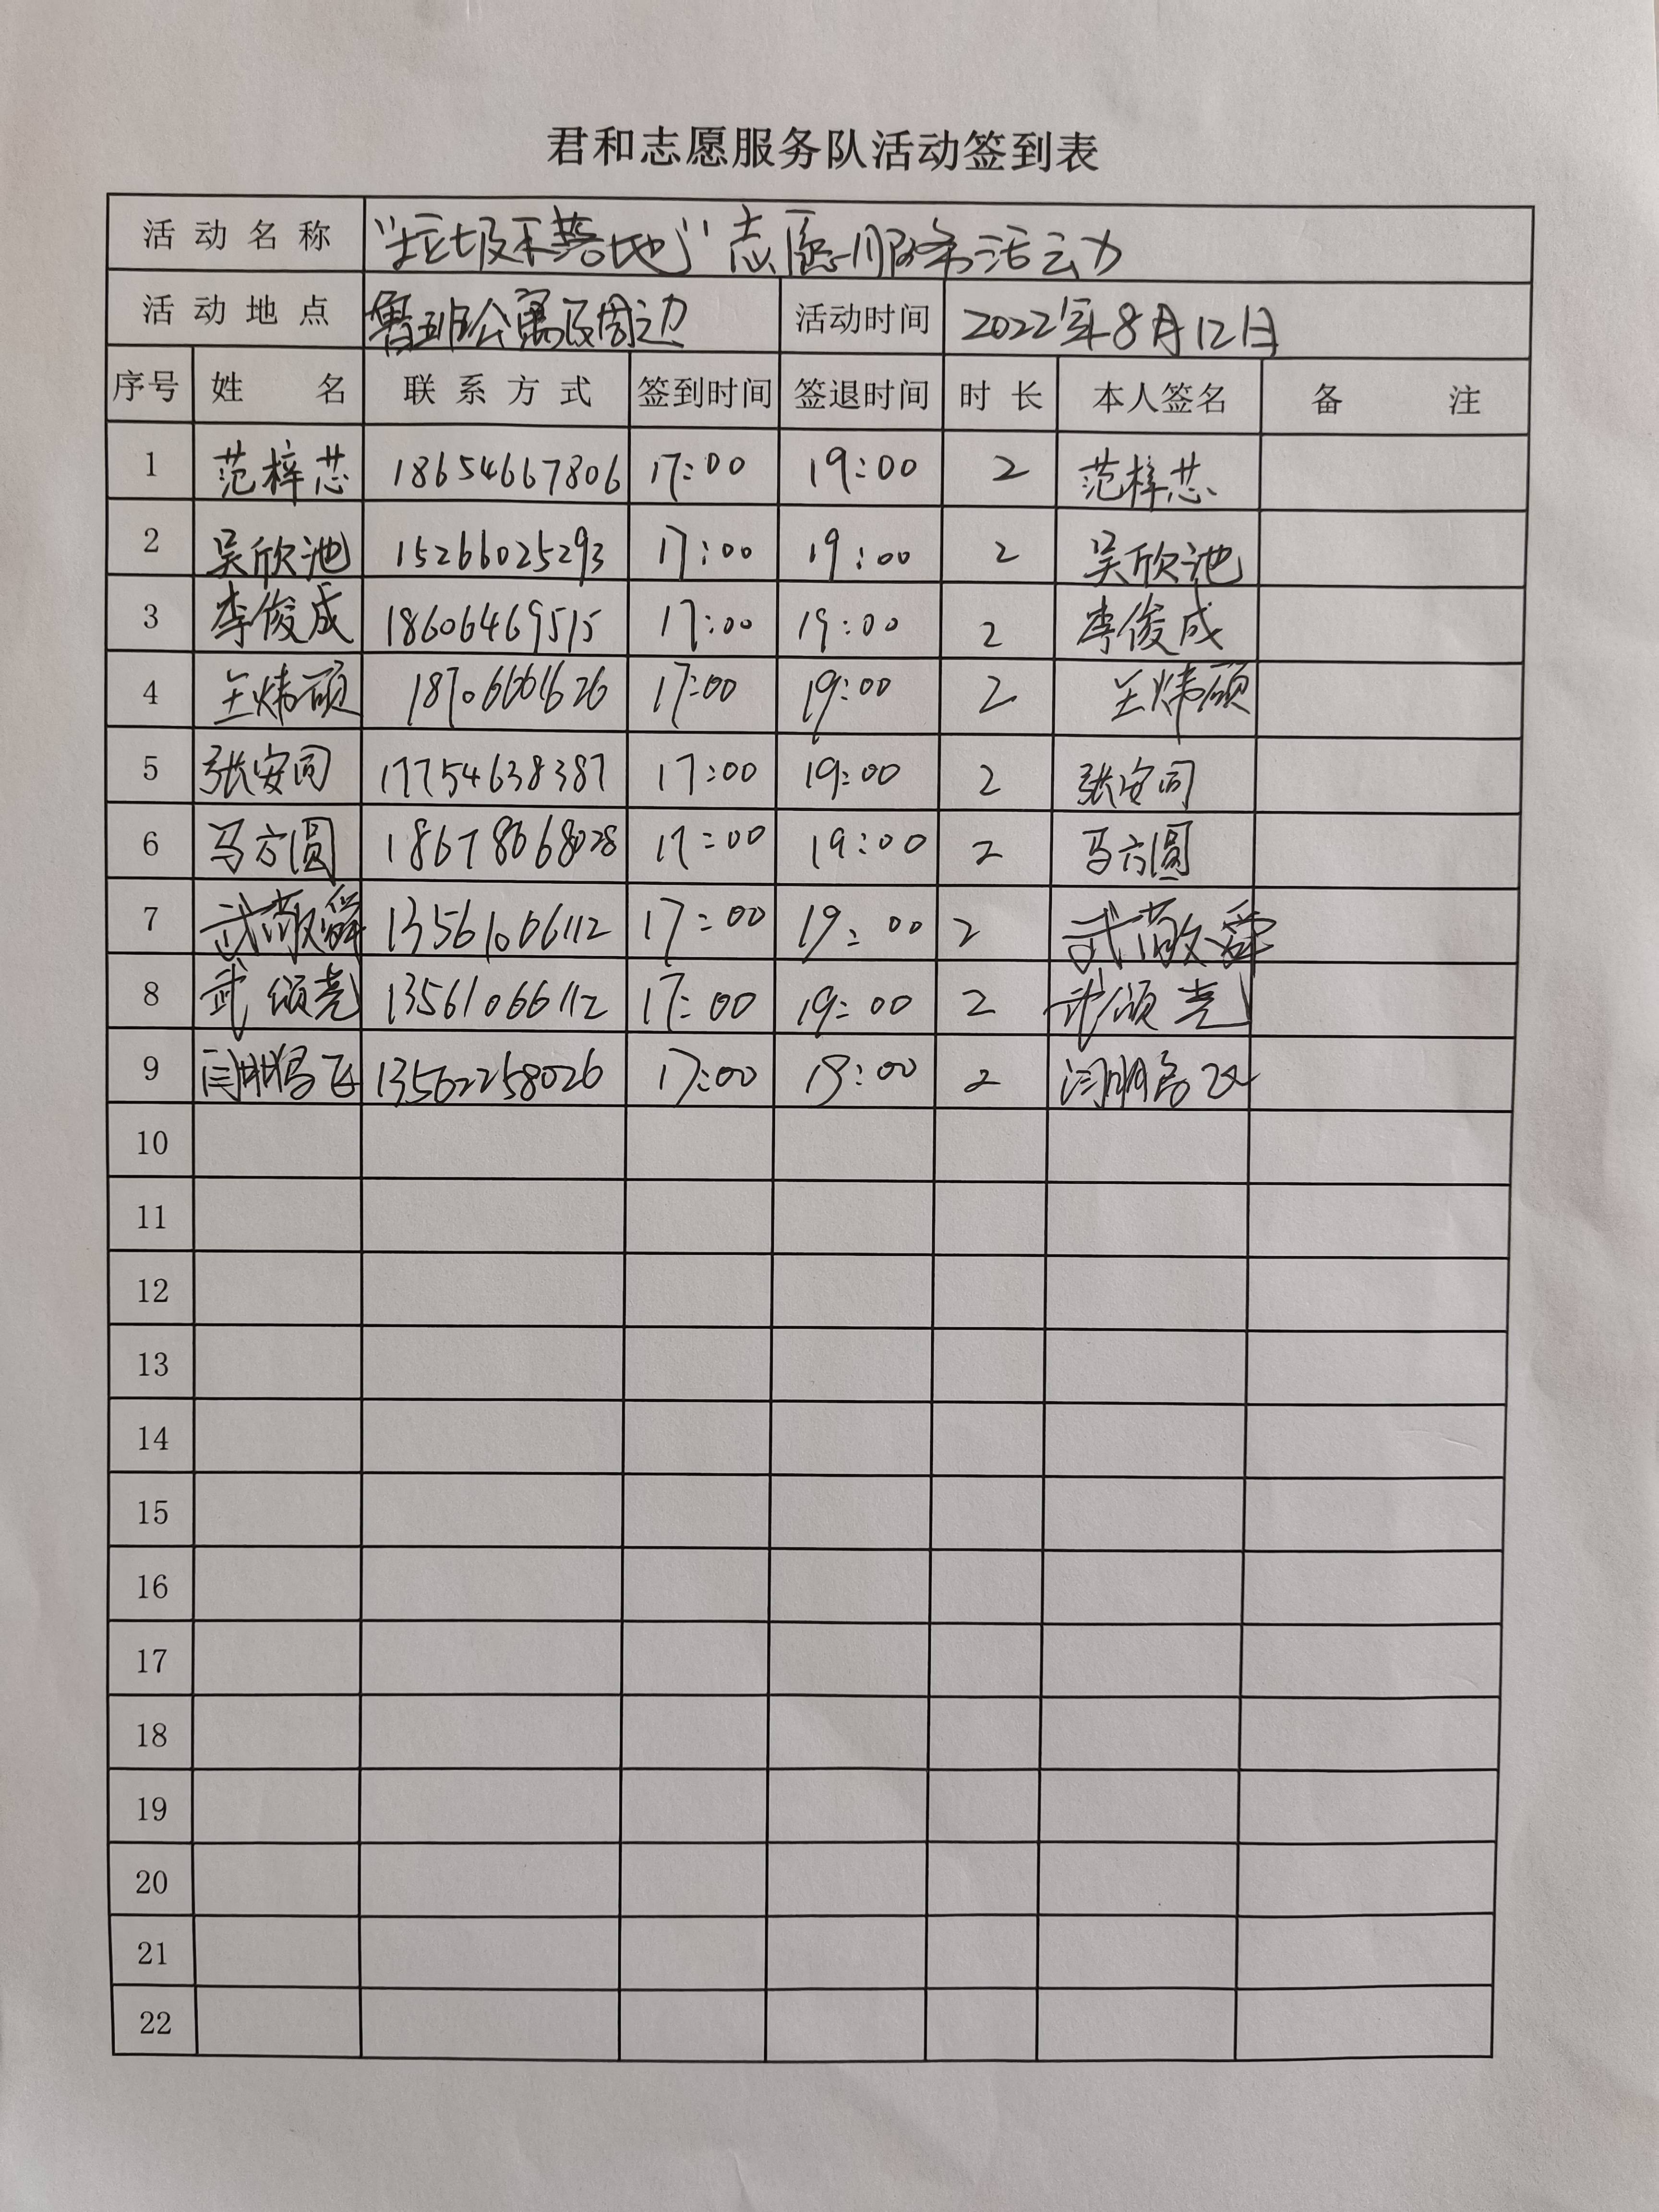 君和志愿服务队活动签到表
活动名称 "垃圾不落地"志愿服务活动
活动地点 鲁班公寓及周边 活动时间 2022年8月12日
序号 姓名 联系方式 签到时间 签退时间 时长 本人签名 备注
1 范梓芯 18654667806 17:00 19:00 2 范梓芯
2 吴欣池 15266025293 17:00 19:00 2 吴欣池
3 李俊成 18606469515 17:00 19:00 2 李俊成
4 王炜硕 17:00 19:00 2 王炜硕
5 张安同 17754638387 17:00 19:00 2 张安同
6 马方圆 18678668028 17:00 19:00 2 马方圆
7 武敬舜 13561066112 17:00 19:00 2 武敬舜
8 武颂尧 13561066112 17:00 19:00 2 武颂尧
9 闫鹏飞 13562258026 17:00 19:00 2 闫鹏飞
10
11
12
13
14
15
16
17
18
19
20
21
22